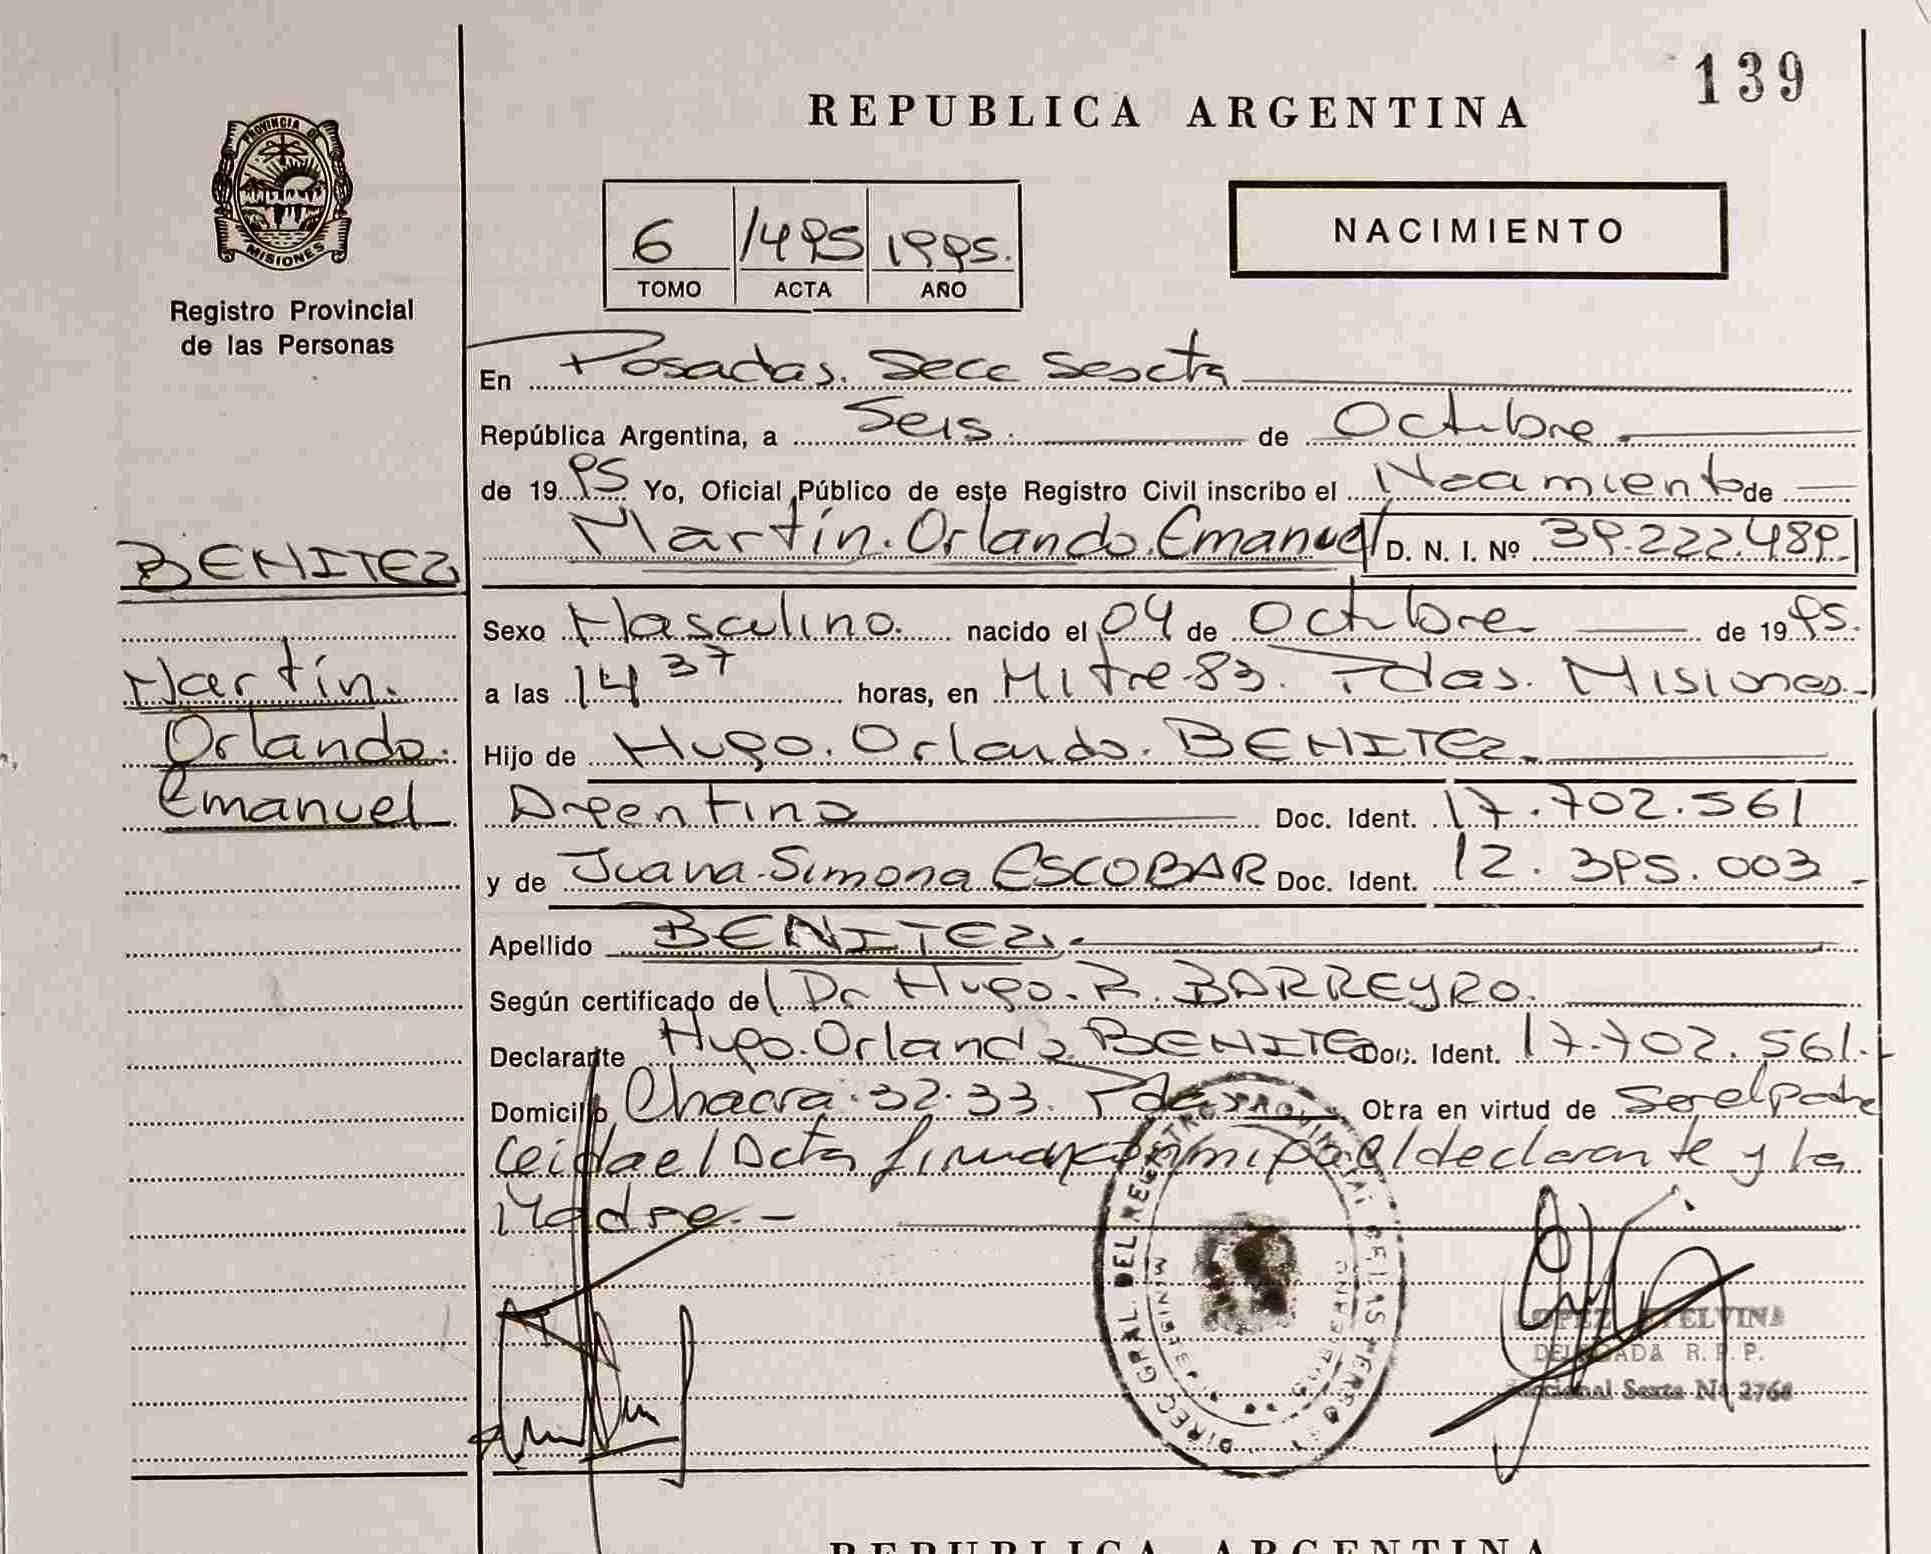 139
REPUBLICA ARGENTINA
PROVINCIA DE
MISIONES
Registro Provincial
de las Personas
6 1495 1995.
TOMO ACTA AÑO
NACIMIENTO
En Posadas. Secc Sexcta
República Argentina, a Seis. de Octubre
de 1995 Yo, Oficial Público de este Registro Civil inscribo el Nacimiento de
Martín. Orlando. Emanuel D. N. I. Nº 39.222.489
BENITEZ
Martín.
Orlando.
Emanuel
Sexo Masculino. nacido el 04 de Octubre de 1995.
a las 14 37 horas, en Mitre 83. Pdas. Misiones.
Hijo de Hugo. Orlando. BENITEZ
Argentino Doc. Ident. 17.702.561
y de Juana Simona ESCOBAR Doc. Ident. 12.395.003
Apellido BENITEZ.
Según certificado del Dr Hugo. R. BARREYRO.
Declarante Hugo. Orlando. BENITEZ Doc. Ident. 17.702.561.
Domicilio Chacra 32-33. Pdas Obra en virtud de Ser el padre
Leida el Acta firman conmigo el declarante y la
Madre.-
DIREC. GRAL. DEL REGISTRO PROVINCIAL DE LAS PERSO
MINISTERI
ELVINA
DELEGADA R. P. P.
Seccional Sexta Nº 2768
REPUBLICA ARGENTINA